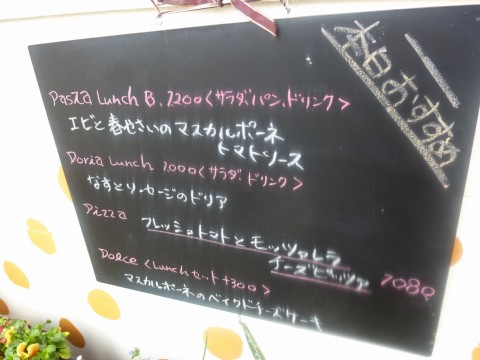 本日おすすめ
Pasta Lunch B. 1,200<サラダ、パン、ドリンク>
エビと春やさいのマスカルポーネ
トマトソース
Doria Lunch 1,000<サラダ、ドリンク>
なすとソーセージのドリア
Pizza
フレッシュトマトとモッツァレラ
チーズピッツァ 1080
Dolce <Lunchセット+300>
マスカルポーネのベイクドチーズケーキ